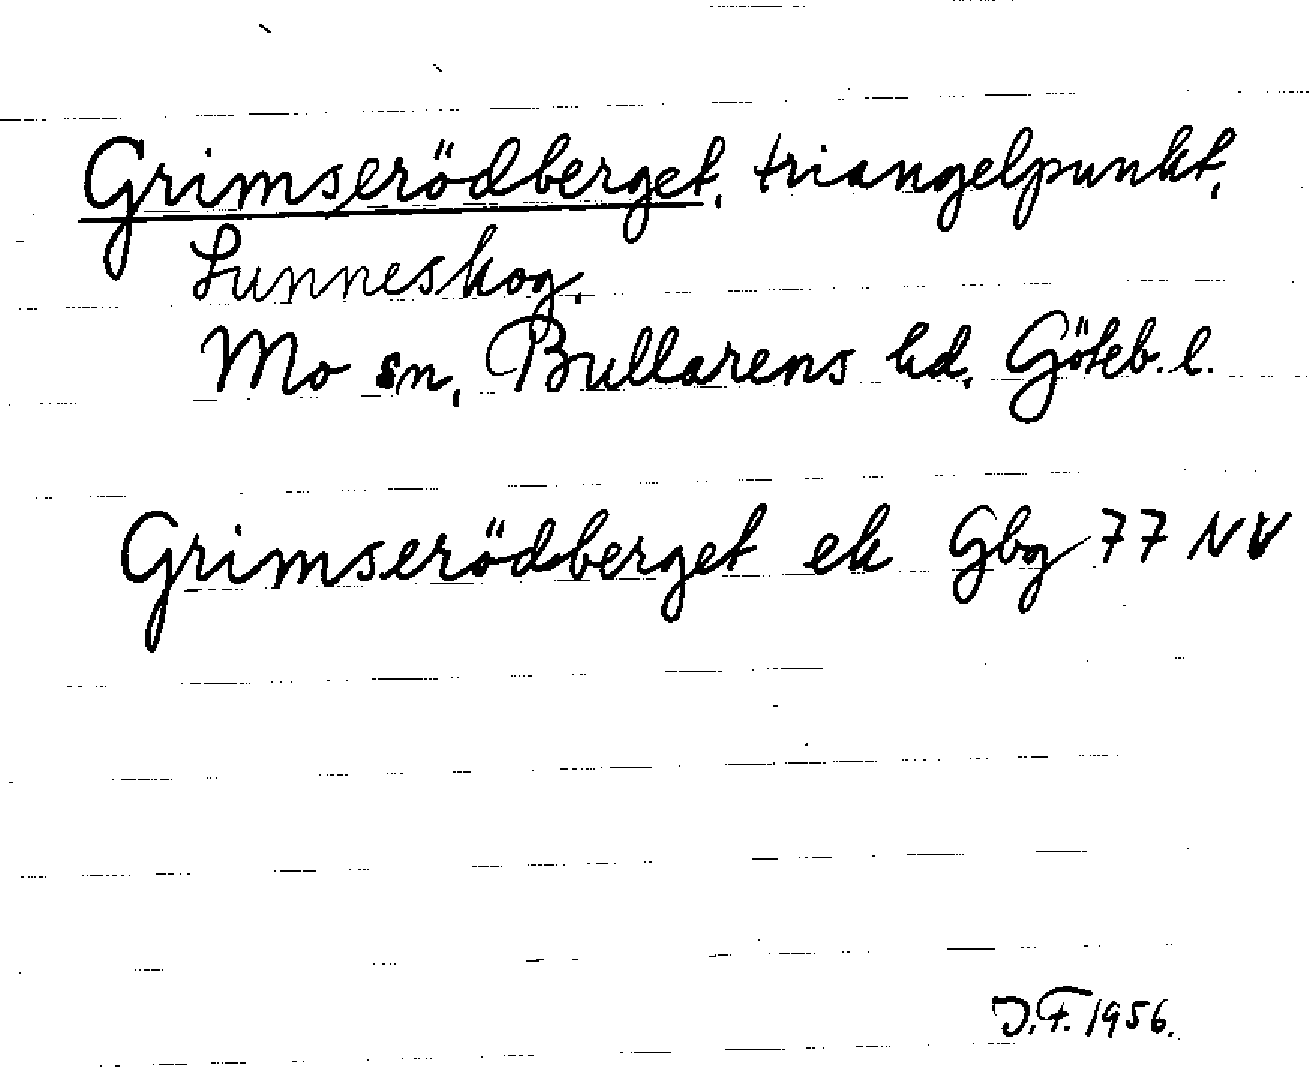 Grimserödberget, triangelpunkt,
Lunneskog,
Mo sn, Bullarens hd, Göteb. l.
Grimserödberget ek Gbg 77 NV
J.F. 1956.